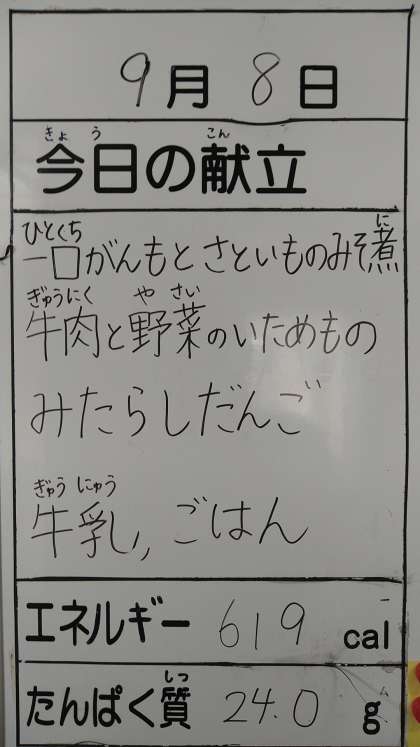 9月8日
きょう こん
今日の献立
ひとくち に
一口がんもとさといものみそ煮
ぎゅうにく や さい
牛肉と野菜のいためもの
みたらしだんご
ぎゅう にゅう
牛乳, ごはん
エネルギー 619 cal
しつ
たんぱく質 24.0 g